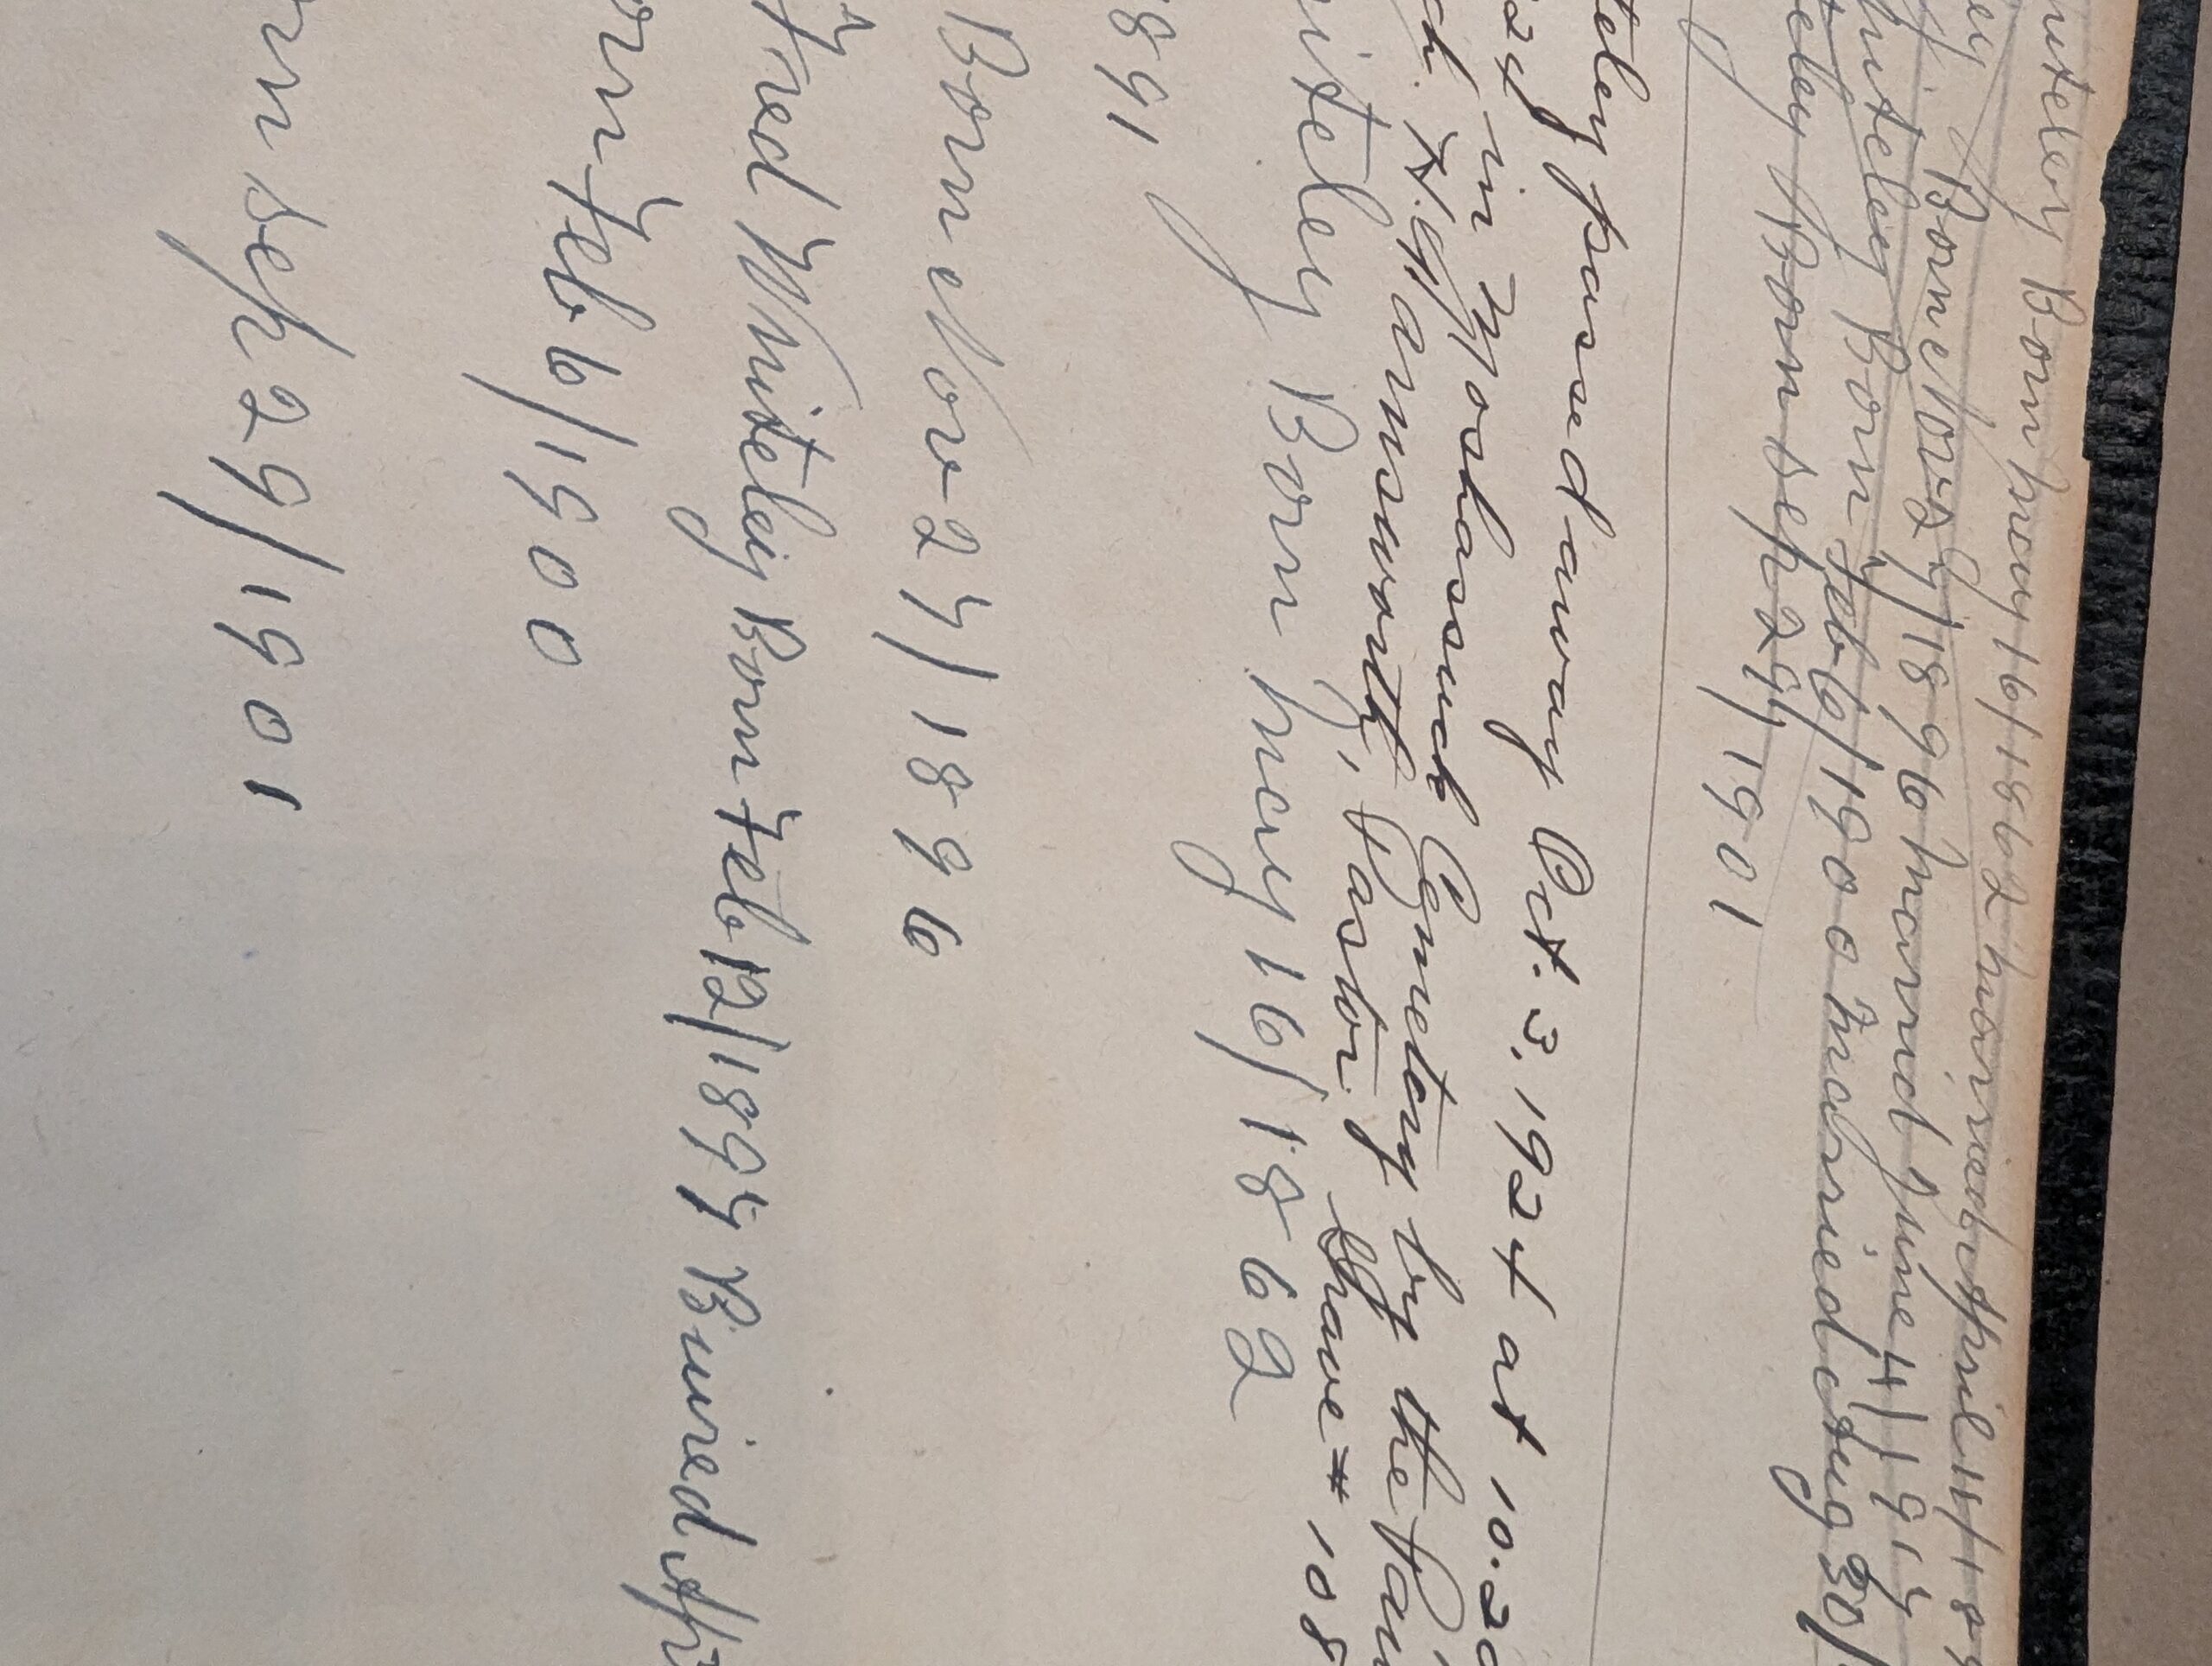 hiteley Born may 16/1862 married April 11/189
ley Born Nov 27/1896 married June 4/1917
Whiteley Born Feb 6/1900 married Aug 30/
teley Born Sep 29/1901
teley passed away Oct. 3, 1924 at 10.20
1924 in Moshassuck Cemetery by the Fam
H. Hannsworth, Pastor. Grave # 108
iteley Born may 16/1862
1891
Born Nov 27/1896
Fred Whiteley Born Feb 12/1897 Buried Apr
orn Feb 6/1900
orn Sep 29/1901